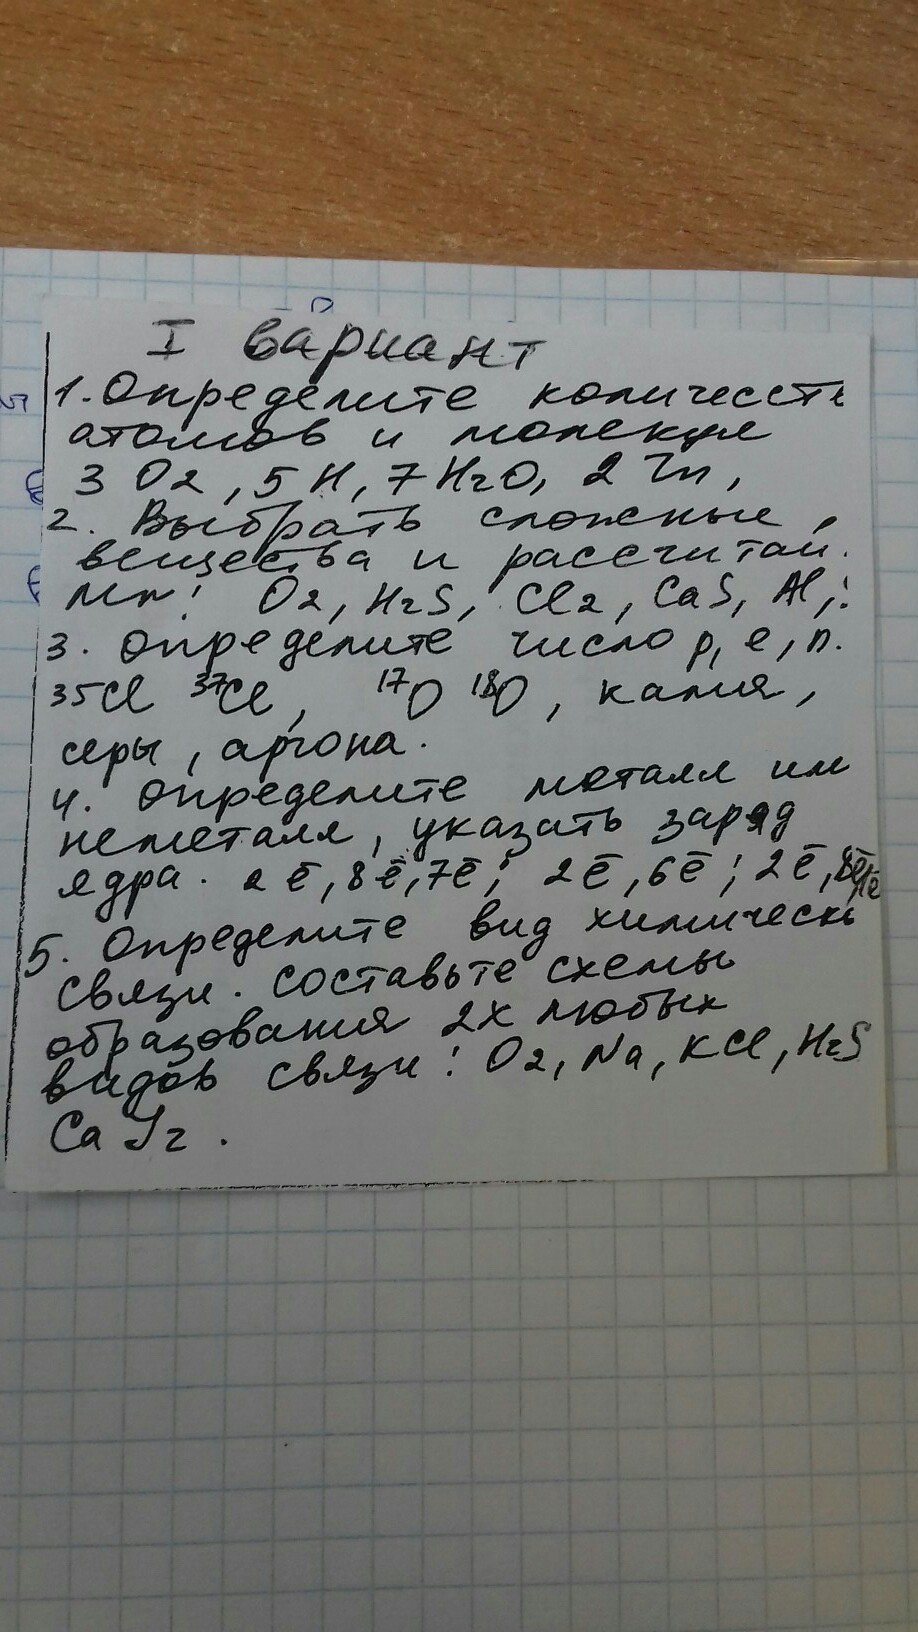 I вариант
1. Определите количеств
атомов и молекул
3 O2, 5 H, 7 H2O, 2 Zn,
2. Выбрать сложные,
вещества и рассчитай.
Mr: O2, H2S, Cl2, CaS, Al,:
3. Определите число p, e, n.
35Cl 37Cl, 17O 18O, калия,
серы, аргона.
4. Определите металл или
неметалл, указать заряд
ядра. 2ē, 8ē, 7ē; 2ē, 6ē; 2ē, 8ē, 1ē
5. Определите вид химическ
связи. Составьте схемы
образования 2х любых
видов связи: O2, Na, KCl, H2S
CaJ2.